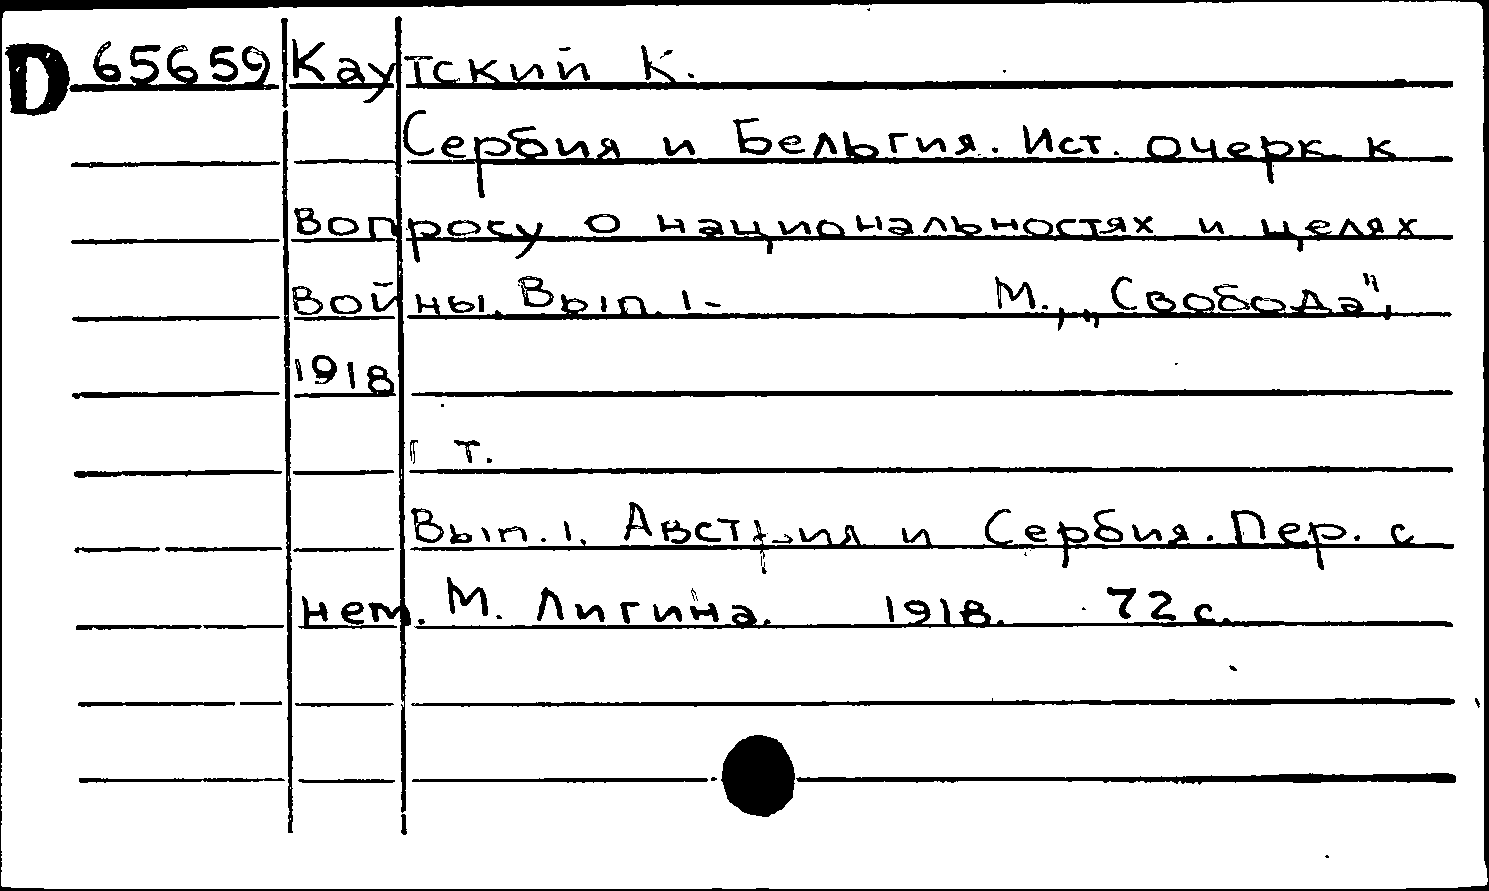 D 65659 Каутский К.
Сербия и Бельгия. Ист. очерк к
вопросу о национальностях и целях
войны. Вып. 1- М., „Свобода",
1918
1 т.
Вып. 1. Австрия и Сербия. Пер. с
нем. М. Лигина. 1918. 72 с.